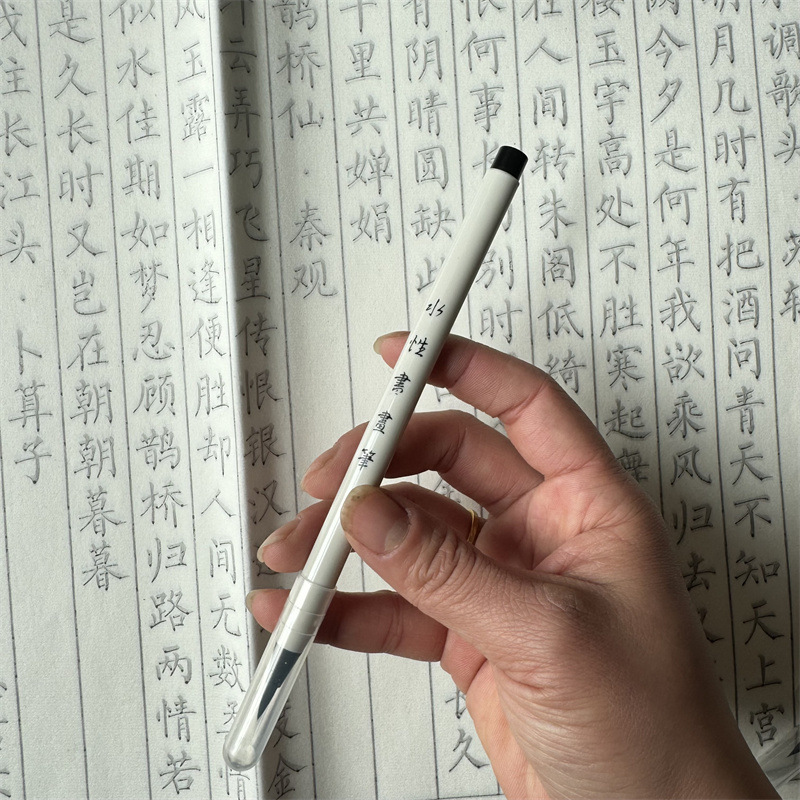 调歌头·苏轼
明月几时有把酒问青天不知天上宫
阙今夕是何年我欲乘风归去又
楼玉宇高处不胜寒起舞
在人间转朱阁低绮
恨何事长
别时
有阴晴圆缺此
长久
千里共婵娟
鹊桥仙·秦观
云弄巧飞星传恨银汉
度金
风玉露一相逢便胜却人间无数柔情
似水佳期如梦忍顾鹊桥归路两情若
是久长时又岂在朝朝暮暮
我住长江头·卜算子
水性書畫筆